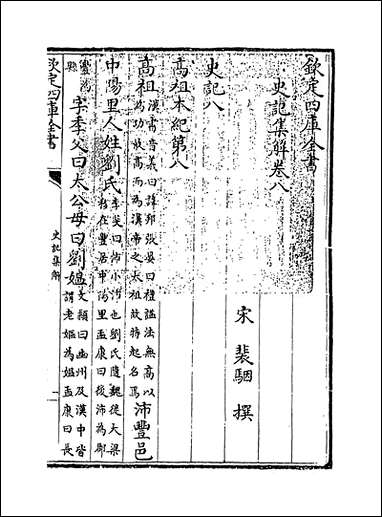 欽定四庫全書
史記集解卷八
宋 裴駰 撰
史記八
高祖本紀第八
高祖漢書音義曰諱邦張晏曰禮諡法無高以為功最高而為漢帝之太祖故特起名焉沛豐邑
中陽里人姓劉氏李斐曰沛小沛也劉氏隨魏徙大梁移在豐居中陽里孟康曰後沛為郡豐為縣
字季父曰太公母曰劉媼文穎曰幽州及漢中皆謂老嫗為媼孟康曰長
欽定四庫全書
史記集解
一